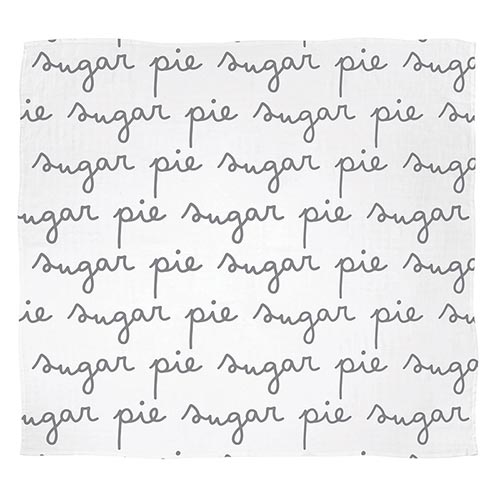 sugar pie sugar pie suga
ie sugar pie sugar pie su
sugar pie sugar pie suga
sugar pie sugar pie sugar
sugar pie sugar pie suga
ie sugar pie sugar pie su
sugar pie sugar pie suga
sugar pie sugar pie sugar